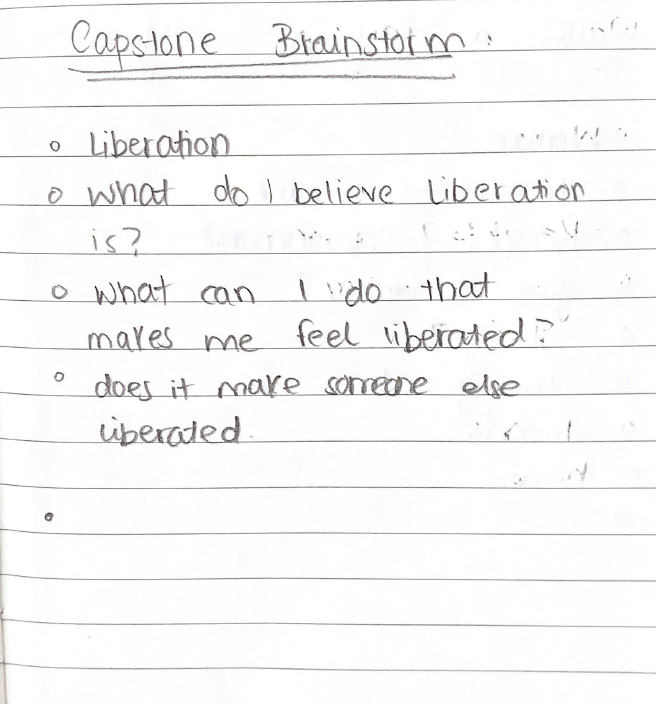 Capstone Brainstorm:
o Liberation
o What do I believe liberation
is?
o What can I do that
makes me feel liberated?
o does it make someone else
liberated.